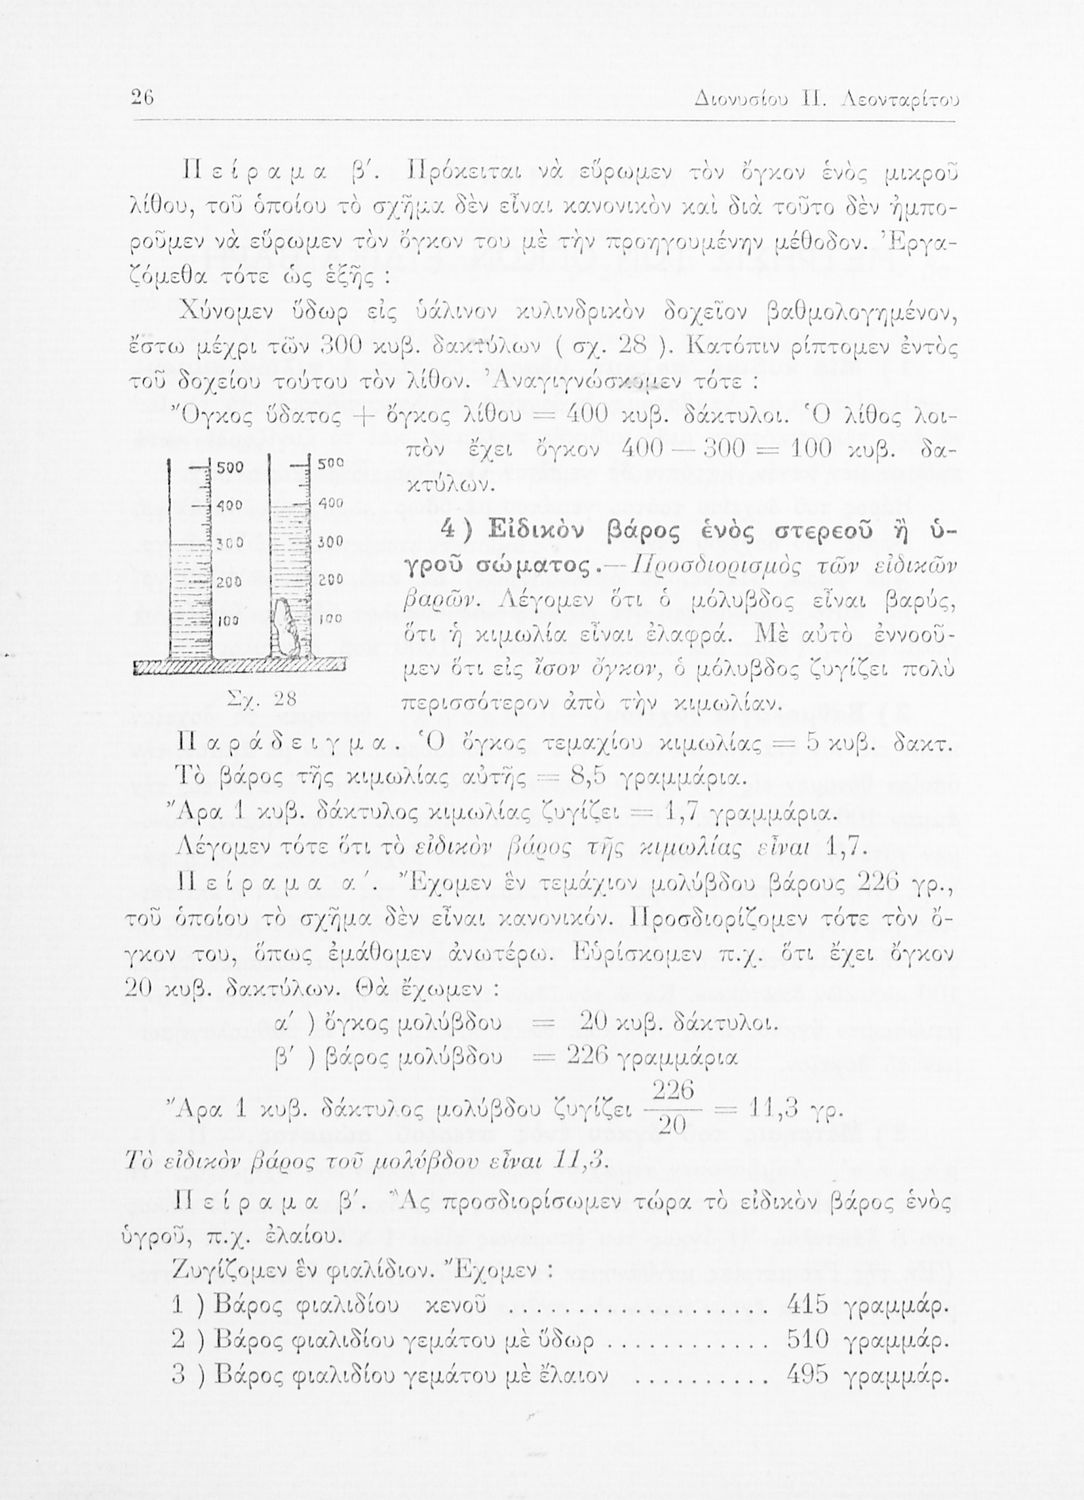 26 Διονυσίου Π. Λεονταρίτου
Πείραμα β΄. Πρόκειται νὰ εὕρωμεν τὸν ὄγκον ἑνὸς μικροῦ
λίθου, τοῦ ὁποίου τὸ σχῆμα δὲν εἶναι κανονικὸν καὶ διὰ τοῦτο δὲν ἠμπο-
ροῦμεν νὰ εὕρωμεν τὸν ὄγκον του μὲ τὴν προηγουμένην μέθοδον. Ἐργα-
ζόμεθα τότε ὡς ἑξῆς :
Χύνομεν ὕδωρ εἰς ὑάλινον κυλινδρικὸν δοχεῖον βαθμολογημένον,
ἔστω μέχρι τῶν 300 κυβ. δακτύλων ( σχ. 28 ). Κατόπιν ρίπτομεν ἐντὸς
τοῦ δοχείου τούτου τὸν λίθον. Ἀναγιγνώσκομεν τότε :
Ὄγκος ὕδατος + ὄγκος λίθου = 400 κυβ. δάκτυλοι. Ὁ λίθος λοι-
πὸν ἔχει ὄγκον 400 — 300 = 100 κυβ. δα-
κτύλων.
500
400
300
200
100
500
400
300
200
100
Σχ. 28
4 ) Εἰδικὸν βάρος ἑνὸς στερεοῦ ἢ ὑ-
γροῦ σώματος.—Προσδιορισμὸς τῶν εἰδικῶν
βαρῶν. Λέγομεν ὅτι ὁ μόλυβδος εἶναι βαρύς,
ὅτι ἡ κιμωλία εἶναι ἐλαφρά. Μὲ αὐτὸ ἐννοοῦ-
μεν ὅτι εἰς ἴσον ὄγκον, ὁ μόλυβδος ζυγίζει πολὺ
περισσότερον ἀπὸ τὴν κιμωλίαν.
Παράδειγμα. Ὁ ὄγκος τεμαχίου κιμωλίας = 5 κυβ. δακτ.
Τὸ βάρος τῆς κιμωλίας αὐτῆς = 8,5 γραμμάρια.
Ἄρα 1 κυβ. δάκτυλος κιμωλίας ζυγίζει = 1,7 γραμμάρια.
Λέγομεν τότε ὅτι τὸ εἰδικὸν βάρος τῆς κιμωλίας εἶναι 1,7.
Πείραμα α΄. Ἔχομεν ἓν τεμάχιον μολύβδου βάρους 226 γρ.,
τοῦ ὁποίου τὸ σχῆμα δὲν εἶναι κανονικόν. Προσδιορίζομεν τότε τὸν ὄ-
γκον του, ὅπως ἐμάθομεν ἀνωτέρω. Εὑρίσκομεν π.χ. ὅτι ἔχει ὄγκον
20 κυβ. δακτύλων. Θὰ ἔχωμεν :
α΄ ) ὄγκος μολύβδου = 20 κυβ. δάκτυλοι.
β΄ ) βάρος μολύβδου = 226 γραμμάρια
Ἄρα 1 κυβ. δάκτυλος μολύβδου ζυγίζει 226/20 = 11,3 γρ.
Τὸ εἰδικὸν βάρος τοῦ μολύβδου εἶναι 11,3.
Πείραμα β΄. Ἂς προσδιορίσωμεν τώρα τὸ εἰδικὸν βάρος ἑνὸς
ὑγροῦ, π.χ. ἐλαίου.
Ζυγίζομεν ἓν φιαλίδιον. Ἔχομεν :
1 ) Βάρος φιαλιδίου κενοῦ . . . . . . . . . . . . . . . . . . 415 γραμμάρ.
2 ) Βάρος φιαλιδίου γεμάτου μὲ ὕδωρ . . . . . . . . . . . . 510 γραμμάρ.
3 ) Βάρος φιαλιδίου γεμάτου μὲ ἔλαιον . . . . . . . . . . 495 γραμμάρ.